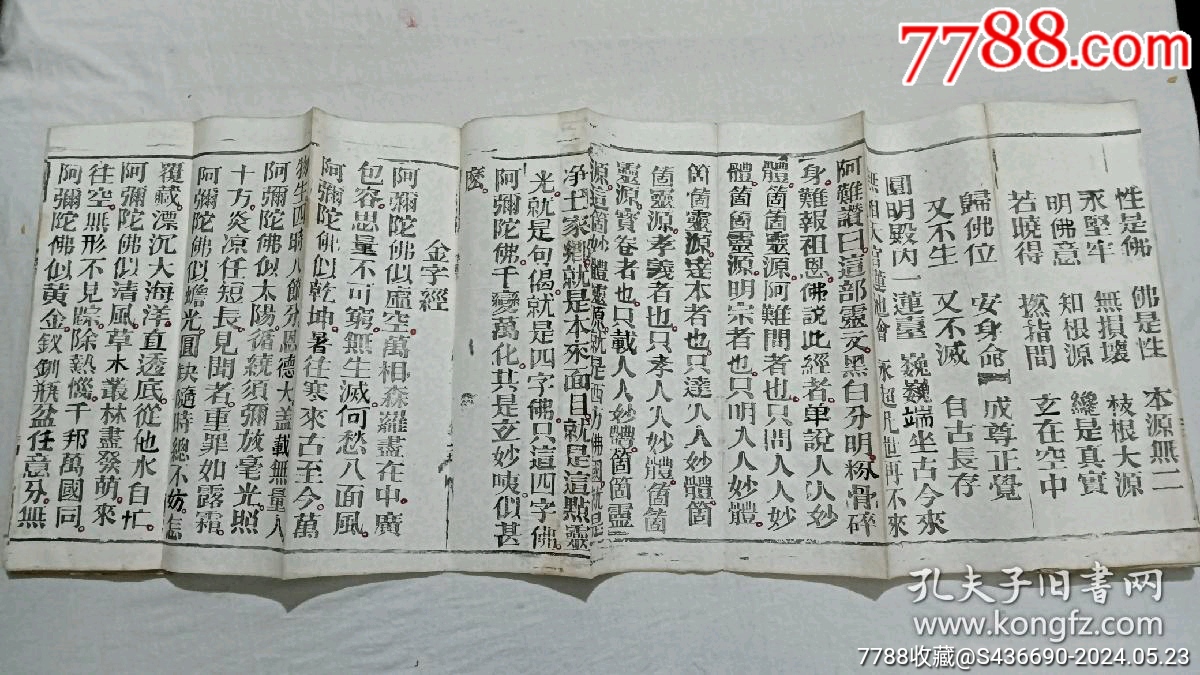 7788.com
性是佛 佛是性 本源無二
永堅牢 無損壞 枝根大源
明佛意 知根源 纔是真實
若曉得 撚指間 玄在空中
歸佛位 安身命 成尊正覺
又不生 又不滅 自古長存
圓明殿內一蓮臺 巍巍端坐古今來
永超凡世再不來
阿難讚曰這部靈文黑白分明粉骨碎
身難報祖恩佛說此經者單說人人妙
體箇箇靈源阿難問者也只問人人妙
體箇箇靈源明宗者也只明人人妙體
箇箇靈源達本者也只達人人妙體箇
箇靈源孝義者也只孝人人妙體箇箇
靈源寶卷者也只載人人妙體箇箇靈
源這箇妙體靈源就是西方佛國就是
淨土家鄉就是本來面目就是這點靈
光就是句偈就是四字佛只這四字佛
阿彌陀佛千變萬化共是玄妙咦似甚
麼
金字經
阿彌陀佛似虛空萬相森羅盡在中廣
包容思量不可窮無生滅何愁八面風
阿彌陀佛似乾坤暑往寒來古至今萬
物生四時八節分恩德大蓋載無量人
阿彌陀佛似太陽循繞須彌放毫光照
十方炎凉任短長見聞者重罪如露霜
阿彌陀佛似蟾光圓缺隨時總不妨怎
覆藏漂沉大海洋直透底從他水自忙
阿彌陀佛似清風草木叢林盡發萌來
往空無形不見踪除熱惱千邦萬國同
阿彌陀佛似黄金釵釧瓶盆任意分無
孔夫子旧書网
www.kongfz.com
7788收藏@S436690-2024.05.23